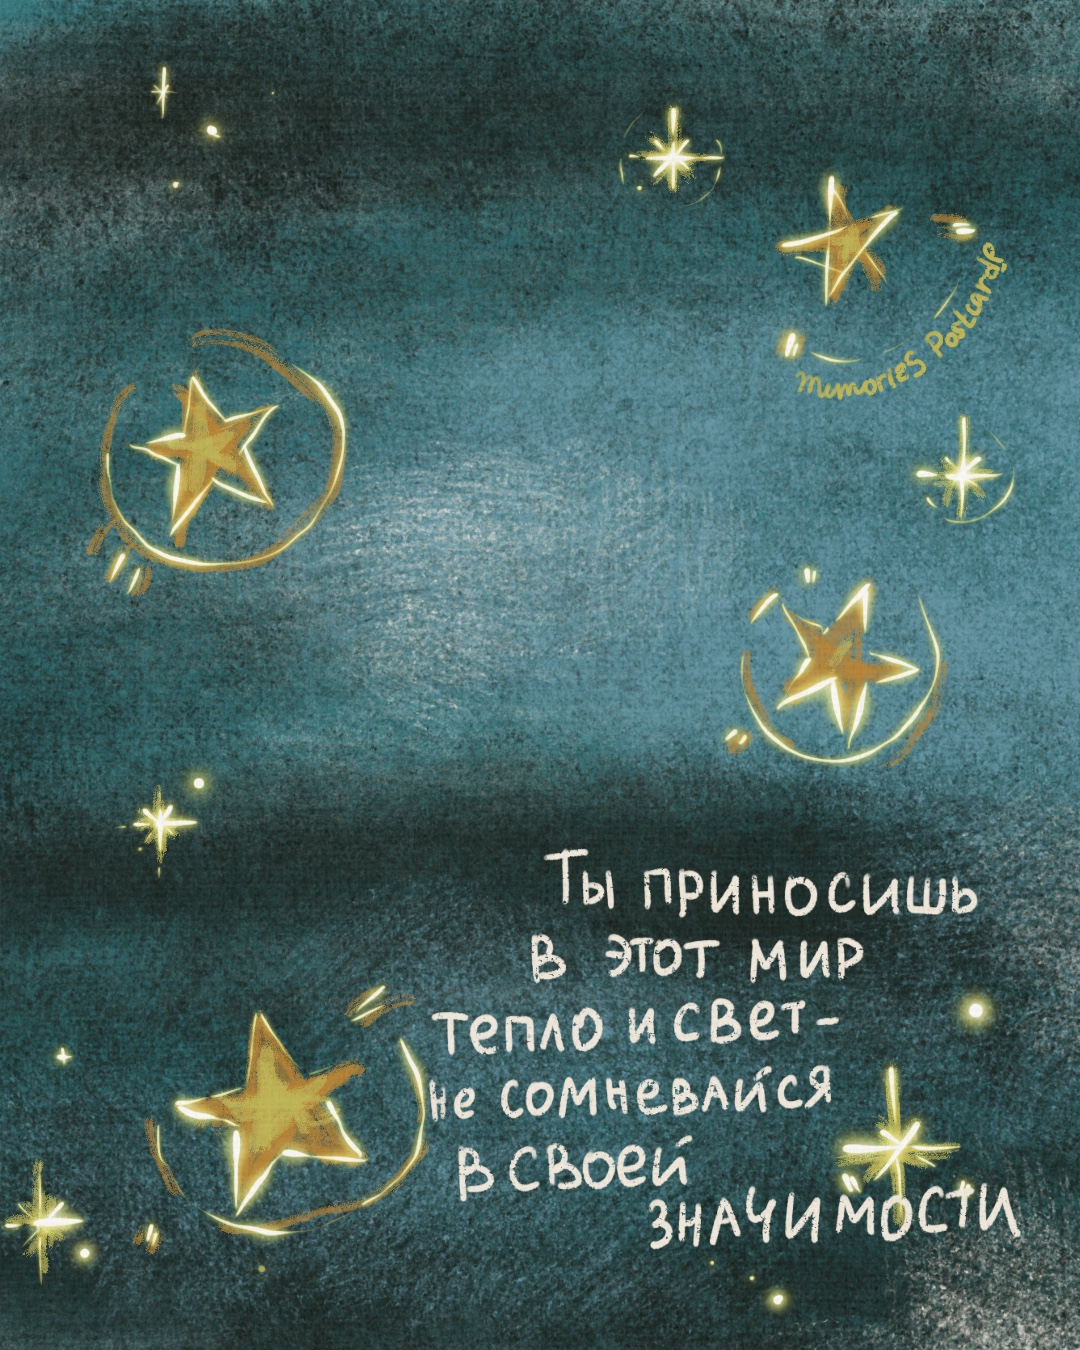 Memories Postcards
Ты приносишь
в этот мир
тепло и свет-
не сомневайся
в своей
значимости